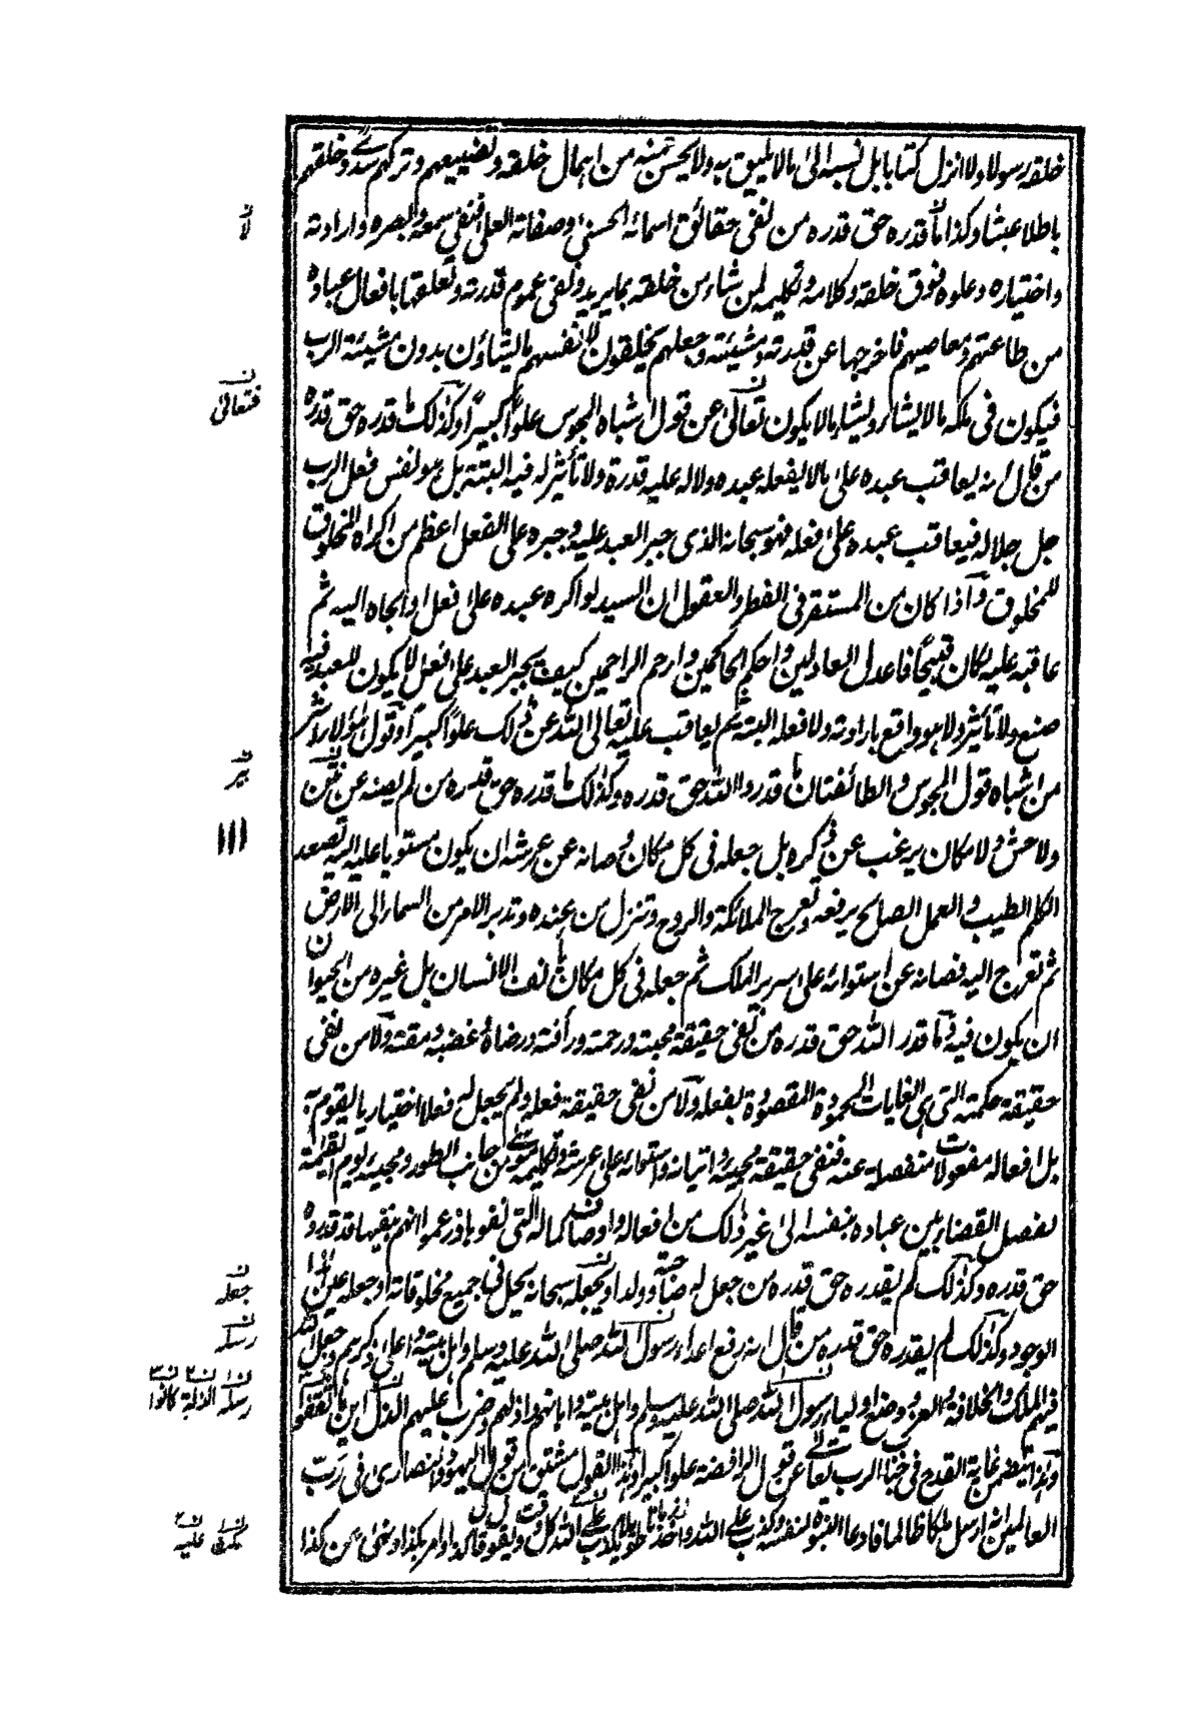 خلقه رسولا ولا انزل كتابا بل نسبه الى مالا يليق به ولا يحسن منه من اهمال خلقه وتضييعهم وتركهم سدى وخلقهم
باطلا عبثا وكذا ما قدره حق قدره من نفى حقائق اسمائه الحسنى وصفاته العلى فنفى سمعه وبصره وارادته
واختياره وعلوه فوق خلقه وكلامه وتكليمه لمن شاء من خلقه بما يريد ونفى عموم قدرته وتعلقها بافعال عباده
من طاعتهم ومعاصيهم فاخرجها عن قدرته ومشيئته وجعلهم يخلقون لانفسهم ما يشاؤن بدون مشيئة الرب
فيكون فى ملكه مالا يشاء ويشاء مالا يكون تعالى عن قول اشباه المجوس علوا كبيرا وكذلك ما قدره حق قدره
من قال انه يعاقب عبده على مالا يفعله عبده ولا له عليه قدرة ولا تأثير له فيه البتة بل هو نفس فعل الرب
جل جلاله فيعاقب عبده على فعله فهو سبحانه الذى جبر العبد عليه وجبره على الفعل اعظم من اكراه المخلوق
للمخلوق واذا كان من المستقر فى الفطر والعقول ان السيد لو اكره عبده على فعل او الجاه اليه ثم
عاقبه عليه لكان قبيحا فاعدل العادلين واحكم الحاكمين وارحم الراحمين كيف يجبر العبد على فعل لا يكون للعبد فيه
صنع ولا تأثير ولا هو واقع بارادته ولا فعله البتة ثم يعاقب عليه تعالى الله عن ذلك علوا كبيرا وقول هؤلاء شر
من اشباه قول المجوس والطائفتان ما قدروا الله حق قدره وكذلك ما قدره حق قدره من لم يصنه عن نتن
ولا حش ولا مكان يرغب عن ذكره بل جعله فى كل مكان وصانه عن عرشه ان يكون مستويا عليه اليه تصعد
الكلم الطيب والعمل الصالح يرفعه وتعرج الملائكة والروح وتنزل من عنده وتدبر الامر من السماء الى الارض
ثم تعرج اليه فصانه عن استوائه على سرير الملك ثم جعله فى كل مكان يأنف الانسان بل غيره من الحيوان
ان يكون فيه وما قدر الله حق قدره من نفى حقيقة محبته ورحمته ورأفته ورضاه وغضبه ومقته ولا من نفى
حقيقة حكمته التى هى الغايات المحمودة المقصودة بفعله ولا من نفى حقيقة فعله ولم يجعل له فعلا اختياريا يقوم به
بل افعاله مفعولات منفصلة عنه فنفى حقيقة مجيئه واتيانه واستوائه على عرشه وتكليمه موسى من جانب الطور ومجيئه يوم القيمة
لفصل القضاء بين عباده بنفسه الى غير ذلك من افعاله واوصاف كماله التى نفوها وزعموا انهم بنفيها قد قدروه
حق قدره وكذلك لم يقدره حق قدره من جعل له صاحبة وولدا ويجعله سبحانه يحل فى جميع مخلوقاته او جعله عين هذا
الوجود وكذلك لم يقدره حق قدره من قال انه رفع اعداء رسول الله صلى الله عليه وسلم واهل بيته واعلى ذكرهم وجعل الله
فيهم الملك والخلافة والعز ووضع اولياء رسول الله صلى الله عليه وسلم واهل بيته واهانهم واذلهم وضرب عليهم الذل اين ما ثقفوا
وهذا يتضمن غاية القدح فى جناب الرب تعالى عن قول الرافضة علوا كبيرا وهذا القول مشتق من قول اليهود والنصارى فى رب
العالمين انه ارسل ملكا ظالما فادعا النبوة لنفسه وكذب على الله واخذ زمانا طويلا يكذب على الله كل وقت ويقول قال كذا وامر بكذا ونهى عن كذا
لا
فتعالى
بير
١١١
جعله
رسله
رسله الذلة كانوا
يكن عليه